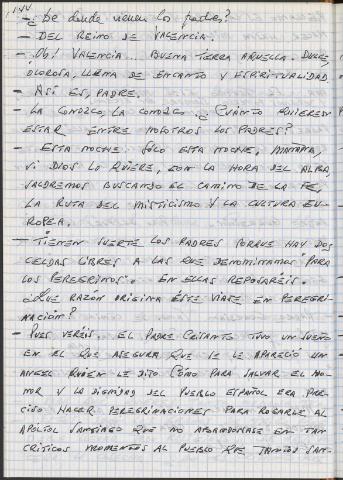 144
- ¿De donde vienen los padres?
- DEL REINO DE VALENCIA.
- OH! VALENCIA... BUENA TIERRA AQUELLA. DULCE,
OLOROSA, LLENA DE ENCANTO Y ESPIRITUALIDAD
- ASI ES, PADRE.
- LA CONOZCO, LA CONOZCO. ¿CUÁNTO QUIEREN
ESTAR ENTRE NOSOTROS LOS PADRES?
- ESTA NOCHE. SOLO ESTA NOCHE, MAÑANA,
SI DIOS LO QUIERE, CON LA HORA DEL ALBA,
SALDREMOS BUSCANDO EL CAMINO DE LA FE,
LA RUTA DEL MISTICISMO Y LA CULTURA EU-
ROPEA.
- TIENEN SUERTE LOS PADRES PORQUE HAY DOS
CELDAS LIBRES A LAS QUE DENOMINAMOS "PARA
LOS PEREGRINOS". EN ELLAS REPOSARÉIS.
¿QUE RAZÓN ORIGINA ÉSTE VIAJE EN PEREGRI-
NACIÓN?
- PUES VERÉIS. EL PADRE CRISANTO TUVO UN SUEÑO
EN EL QUE ASEGURA QUE SE LE APARECIÓ UN
ANGEL QUIEN LE DIJO COMO PARA SALVAR EL HO-
NOR Y LA DIGNIDAD DEL PUEBLO ESPAÑOL ERA PRE-
CISO HACER PEREGRINACIONES PARA ROGARLE AL
APÓSTOL SANTIAGO QUE NO ABANDONASE EN TAN
CRÍTICOS MOMENTOS AL PUEBLO QUE TANTOS SAN-